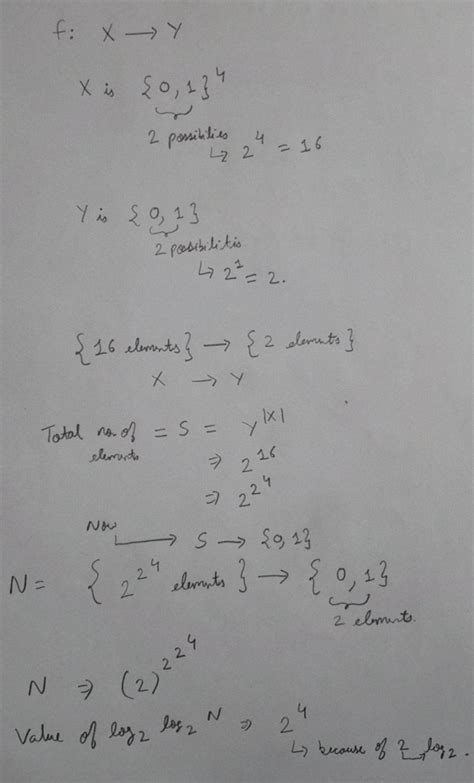 f: X → Y
X is {0, 1}⁴
2 possibilities
↳ 2⁴ = 16
Y is {0, 1}
2 possibilitis
↳ 2¹ = 2.
{16 elements} → {2 elements}
X → Y
Total no. of elements = S = Y^|X|
⇒ 2^16
⇒ 2^2^4
Now → S → {0, 1}
N = {2^2^4 elements} → {0, 1}
2 elements.
N ⇒ (2)^2^2^4
Value of log₂ log₂ N ⇒ 2⁴
↳ because of 2 log₂.